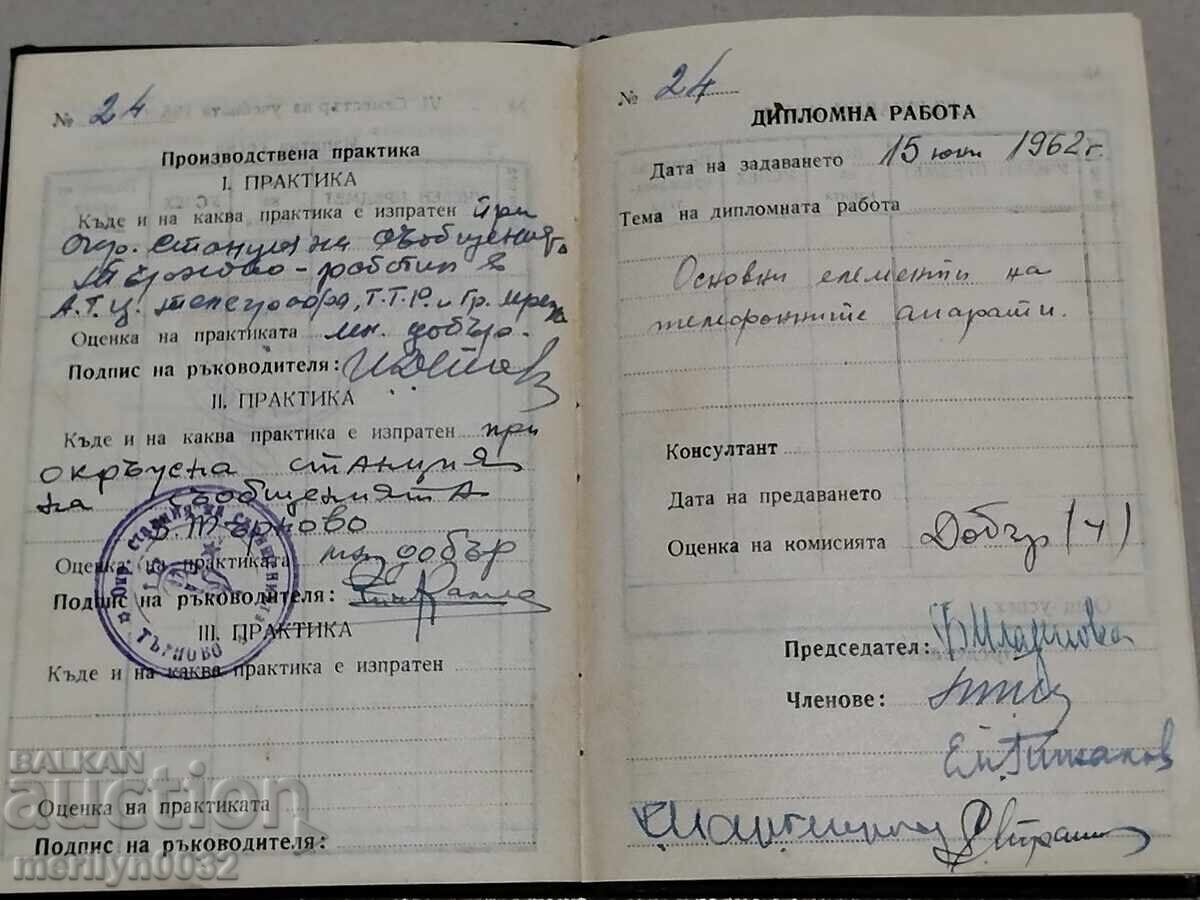 № 24
Производствена практика
I. ПРАКТИКА
Къде и на каква практика е изпратен при
Окр. станция на съобщения
Търново - работил в
А.Т.Ц. телеграфа, Т.Т.Р. и Гр. мрежа
Оценка на практиката мн. добър.
Подпис на ръководителя:
II. ПРАКТИКА
Къде и на каква практика е изпратен при
окръжна станция
на съобщенията
В. Търново
Оценка на практиката мн. добър
Подпис на ръководителя:
III. ПРАКТИКА
Къде и на каква практика е изпратен
Оценка на практиката
Подпис на ръководителя:
Окр. станция на съобщенията
ТЪРНОВО
№ 24
ДИПЛОМНА РАБОТА
Дата на задаването 15 юни 1962 г.
Тема на дипломната работа
Основни елементи на
телефонните апарати.
Консултант
Дата на предаването
Оценка на комисията Добър (4)
Председател:
Членове:
BALKAN
auction
merilyn0032